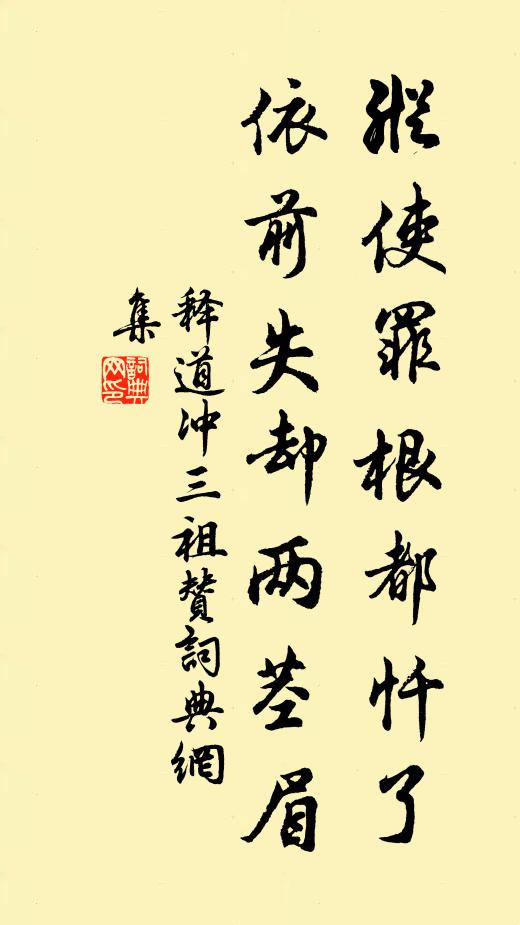 縱使罪根都忏了
依前失却两茎眉
释道冲三祖赞詞典網
集
詞典
网印